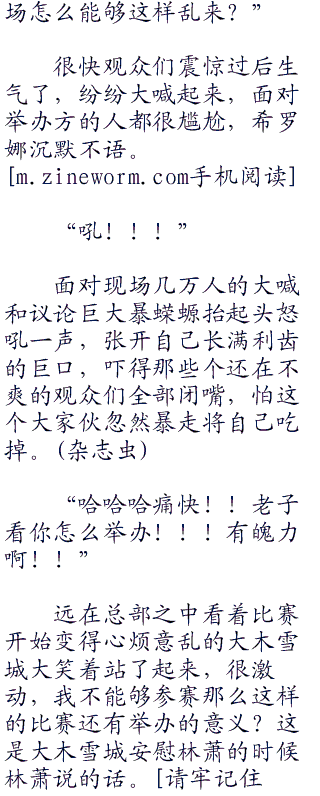 场怎么能够这样乱来？”
很快观众们震惊过后生
气了，纷纷大喊起来，面对
举办方的人都很尴尬，希罗
娜沉默不语。
[m.zineworm.com手机阅读]
“吼！！！”
面对现场几万人的大喊
和议论巨大暴蝾螈抬起头怒
吼一声，张开自己长满利齿
的巨口，吓得那些个还在不
爽的观众们全部闭嘴，怕这
个大家伙忽然暴走将自己吃
掉。(杂志虫)
“哈哈哈痛快！！老子
看你怎么举办！！！有魄力
啊！！”
远在总部之中看着比赛
开始变得心烦意乱的大木雪
城大笑着站了起来，很激
动，我不能够参赛那么这样
的比赛还有举办的意义？这
是大木雪城安慰林萧的时候
林萧说的话。[请牢记住